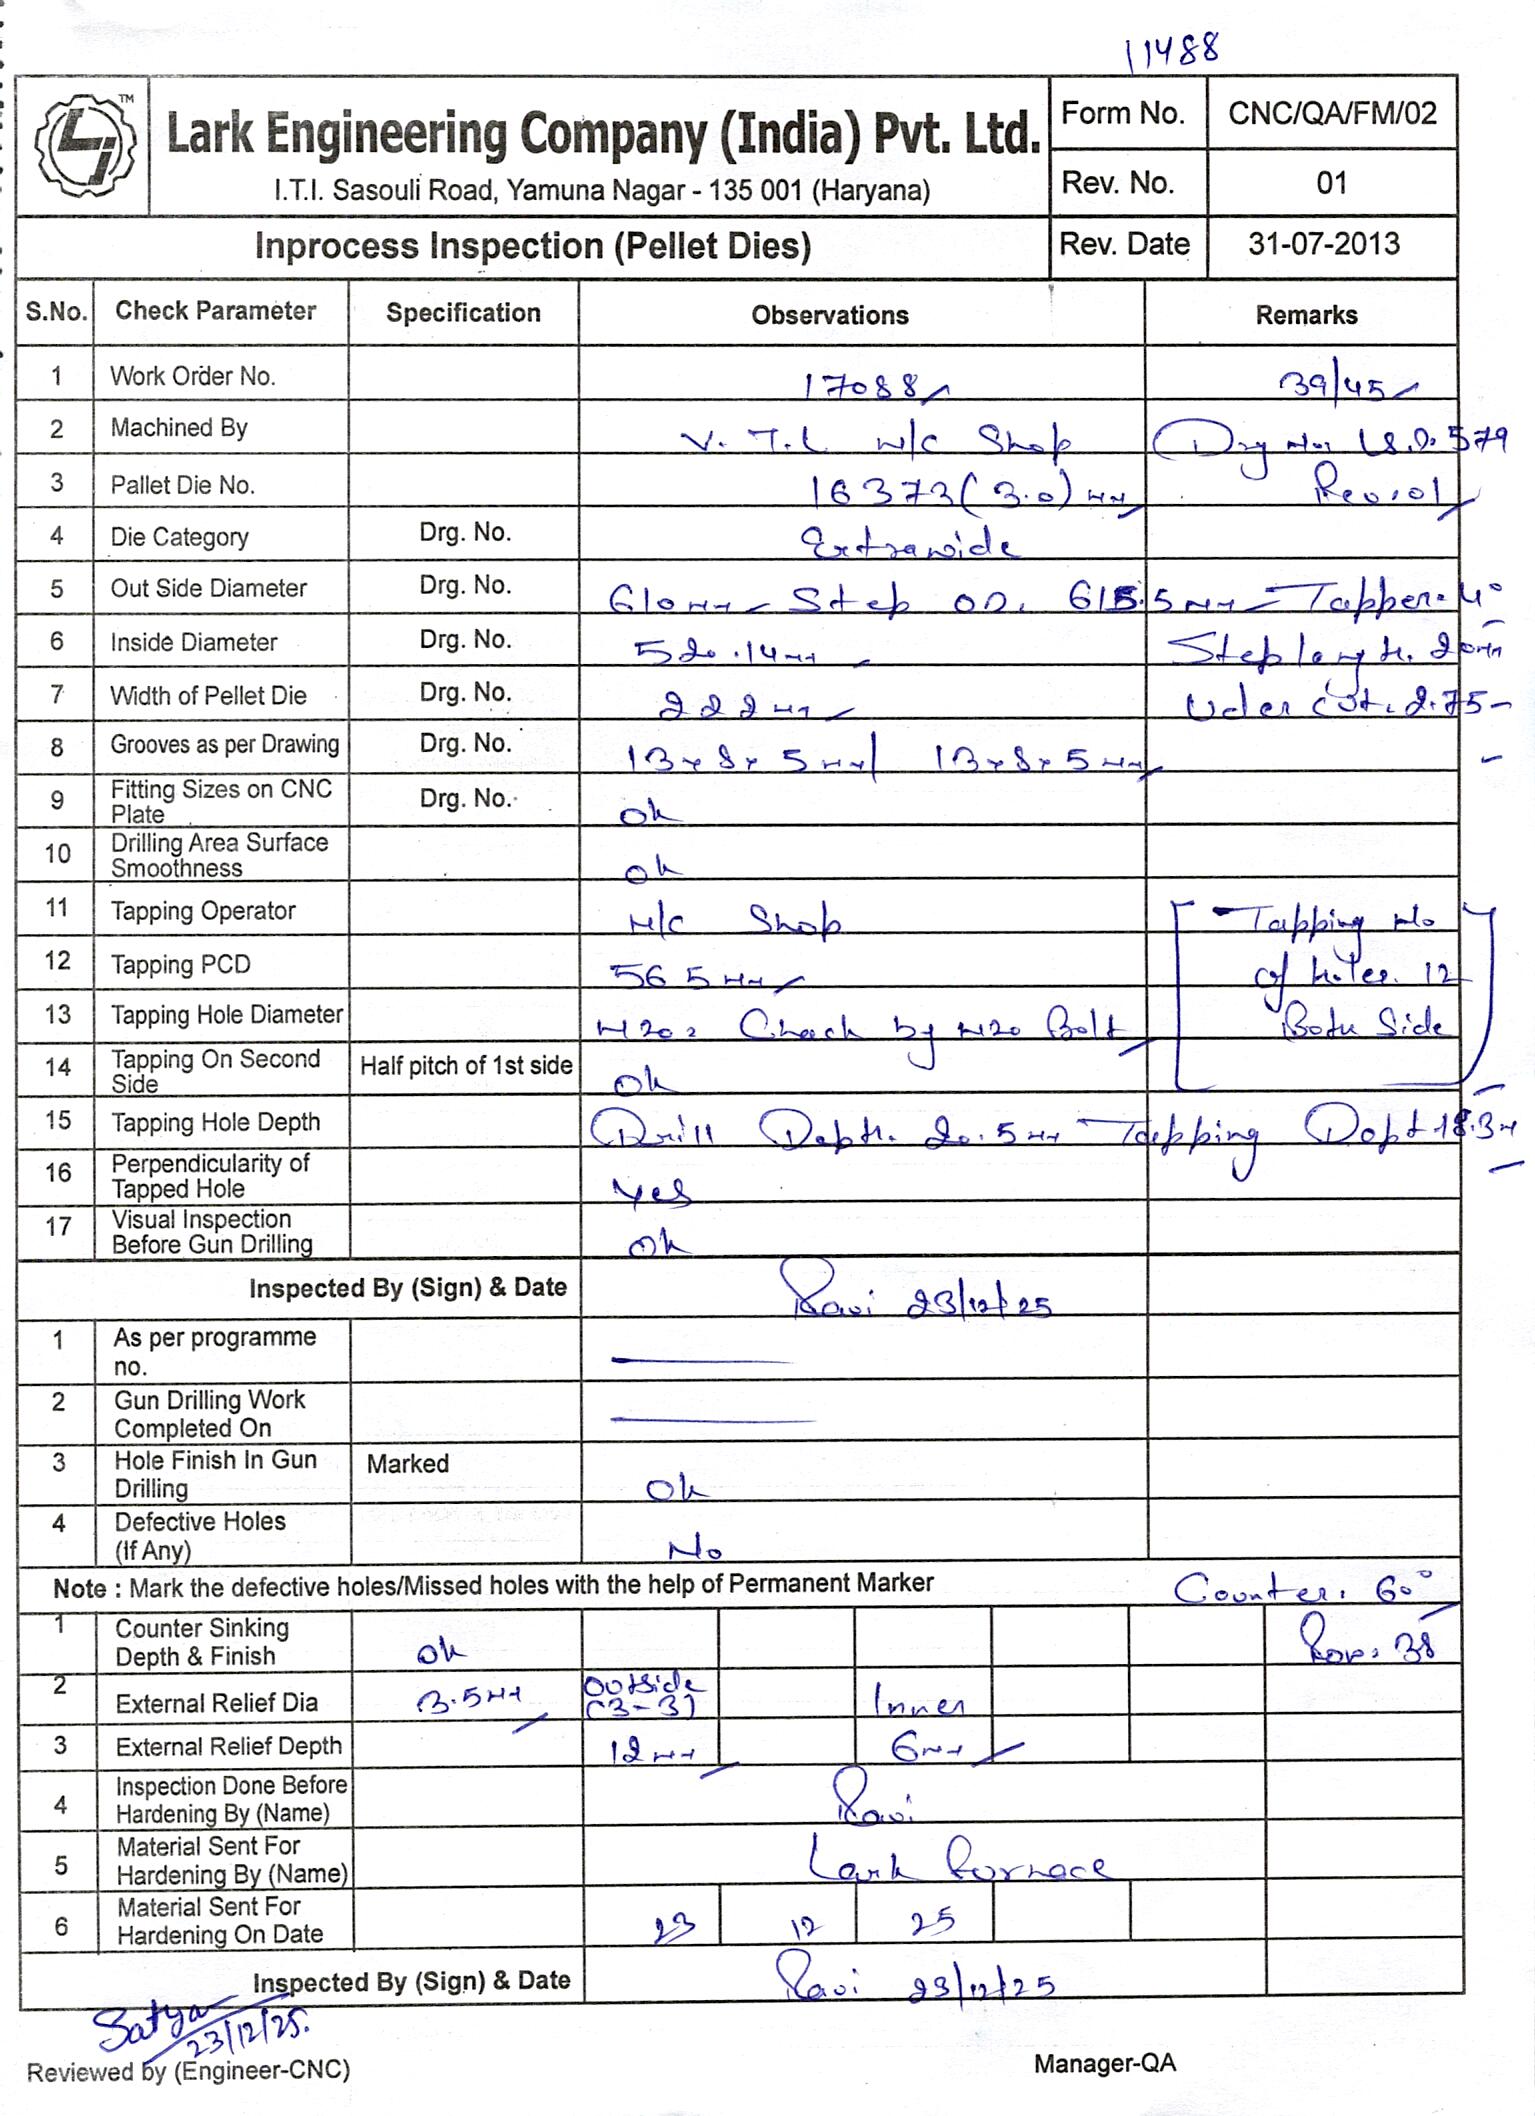 11488
TM
Lark Engineering Company (India) Pvt. Ltd.
I.T.I. Sasouli Road, Yamuna Nagar - 135 001 (Haryana)
Form No. CNC/QA/FM/02
Rev. No. 01
Inprocess Inspection (Pellet Dies) Rev. Date 31-07-2013
S.No. Check Parameter Specification Observations Remarks
1 Work Order No. 17088 39/45
2 Machined By V.T.L M/C Shop Drg No: LS.D. 579
3 Pallet Die No. 16373 (3.0) mm Rev:01
4 Die Category Drg. No. Extrawide
5 Out Side Diameter Drg. No. 610mm - Step OD. 615.5mm - Tapper- 4°
6 Inside Diameter Drg. No. 520.14mm Step length. 20mm
7 Width of Pellet Die Drg. No. 222mm Uder cut. 2.75
8 Grooves as per Drawing Drg. No. 13x8x5mm/ 13x8x5mm
9 Fitting Sizes on CNC Plate Drg. No. Ok
10 Drilling Area Surface Smoothness Ok
11 Tapping Operator M/C Shop Tapping No
12 Tapping PCD 565mm of holes. 12
13 Tapping Hole Diameter M20: Chack by M20 Bolt Both Side
14 Tapping On Second Side Half pitch of 1st side Ok
15 Tapping Hole Depth Drill Depth. 20.5mm Tapping Dept 18.3m
16 Perpendicularity of Tapped Hole Yes
17 Visual Inspection Before Gun Drilling Ok
Inspected By (Sign) & Date Ravi 23/12/25
1 As per programme no.
2 Gun Drilling Work Completed On
3 Hole Finish In Gun Drilling Marked Ok
4 Defective Holes (If Any) No
Note : Mark the defective holes/Missed holes with the help of Permanent Marker Counter. 60°
1 Counter Sinking Depth & Finish Ok Row: 38
2 External Relief Dia 3.5mm Outside (3-3) Inner
3 External Relief Depth 12mm 6mm
4 Inspection Done Before Hardening By (Name) Ravi
5 Material Sent For Hardening By (Name) Lark Furnace
6 Material Sent For Hardening On Date 23 12 25
Inspected By (Sign) & Date Ravi 23/12/25
Satya
23/12/25.
Reviewed by (Engineer-CNC) Manager-QA